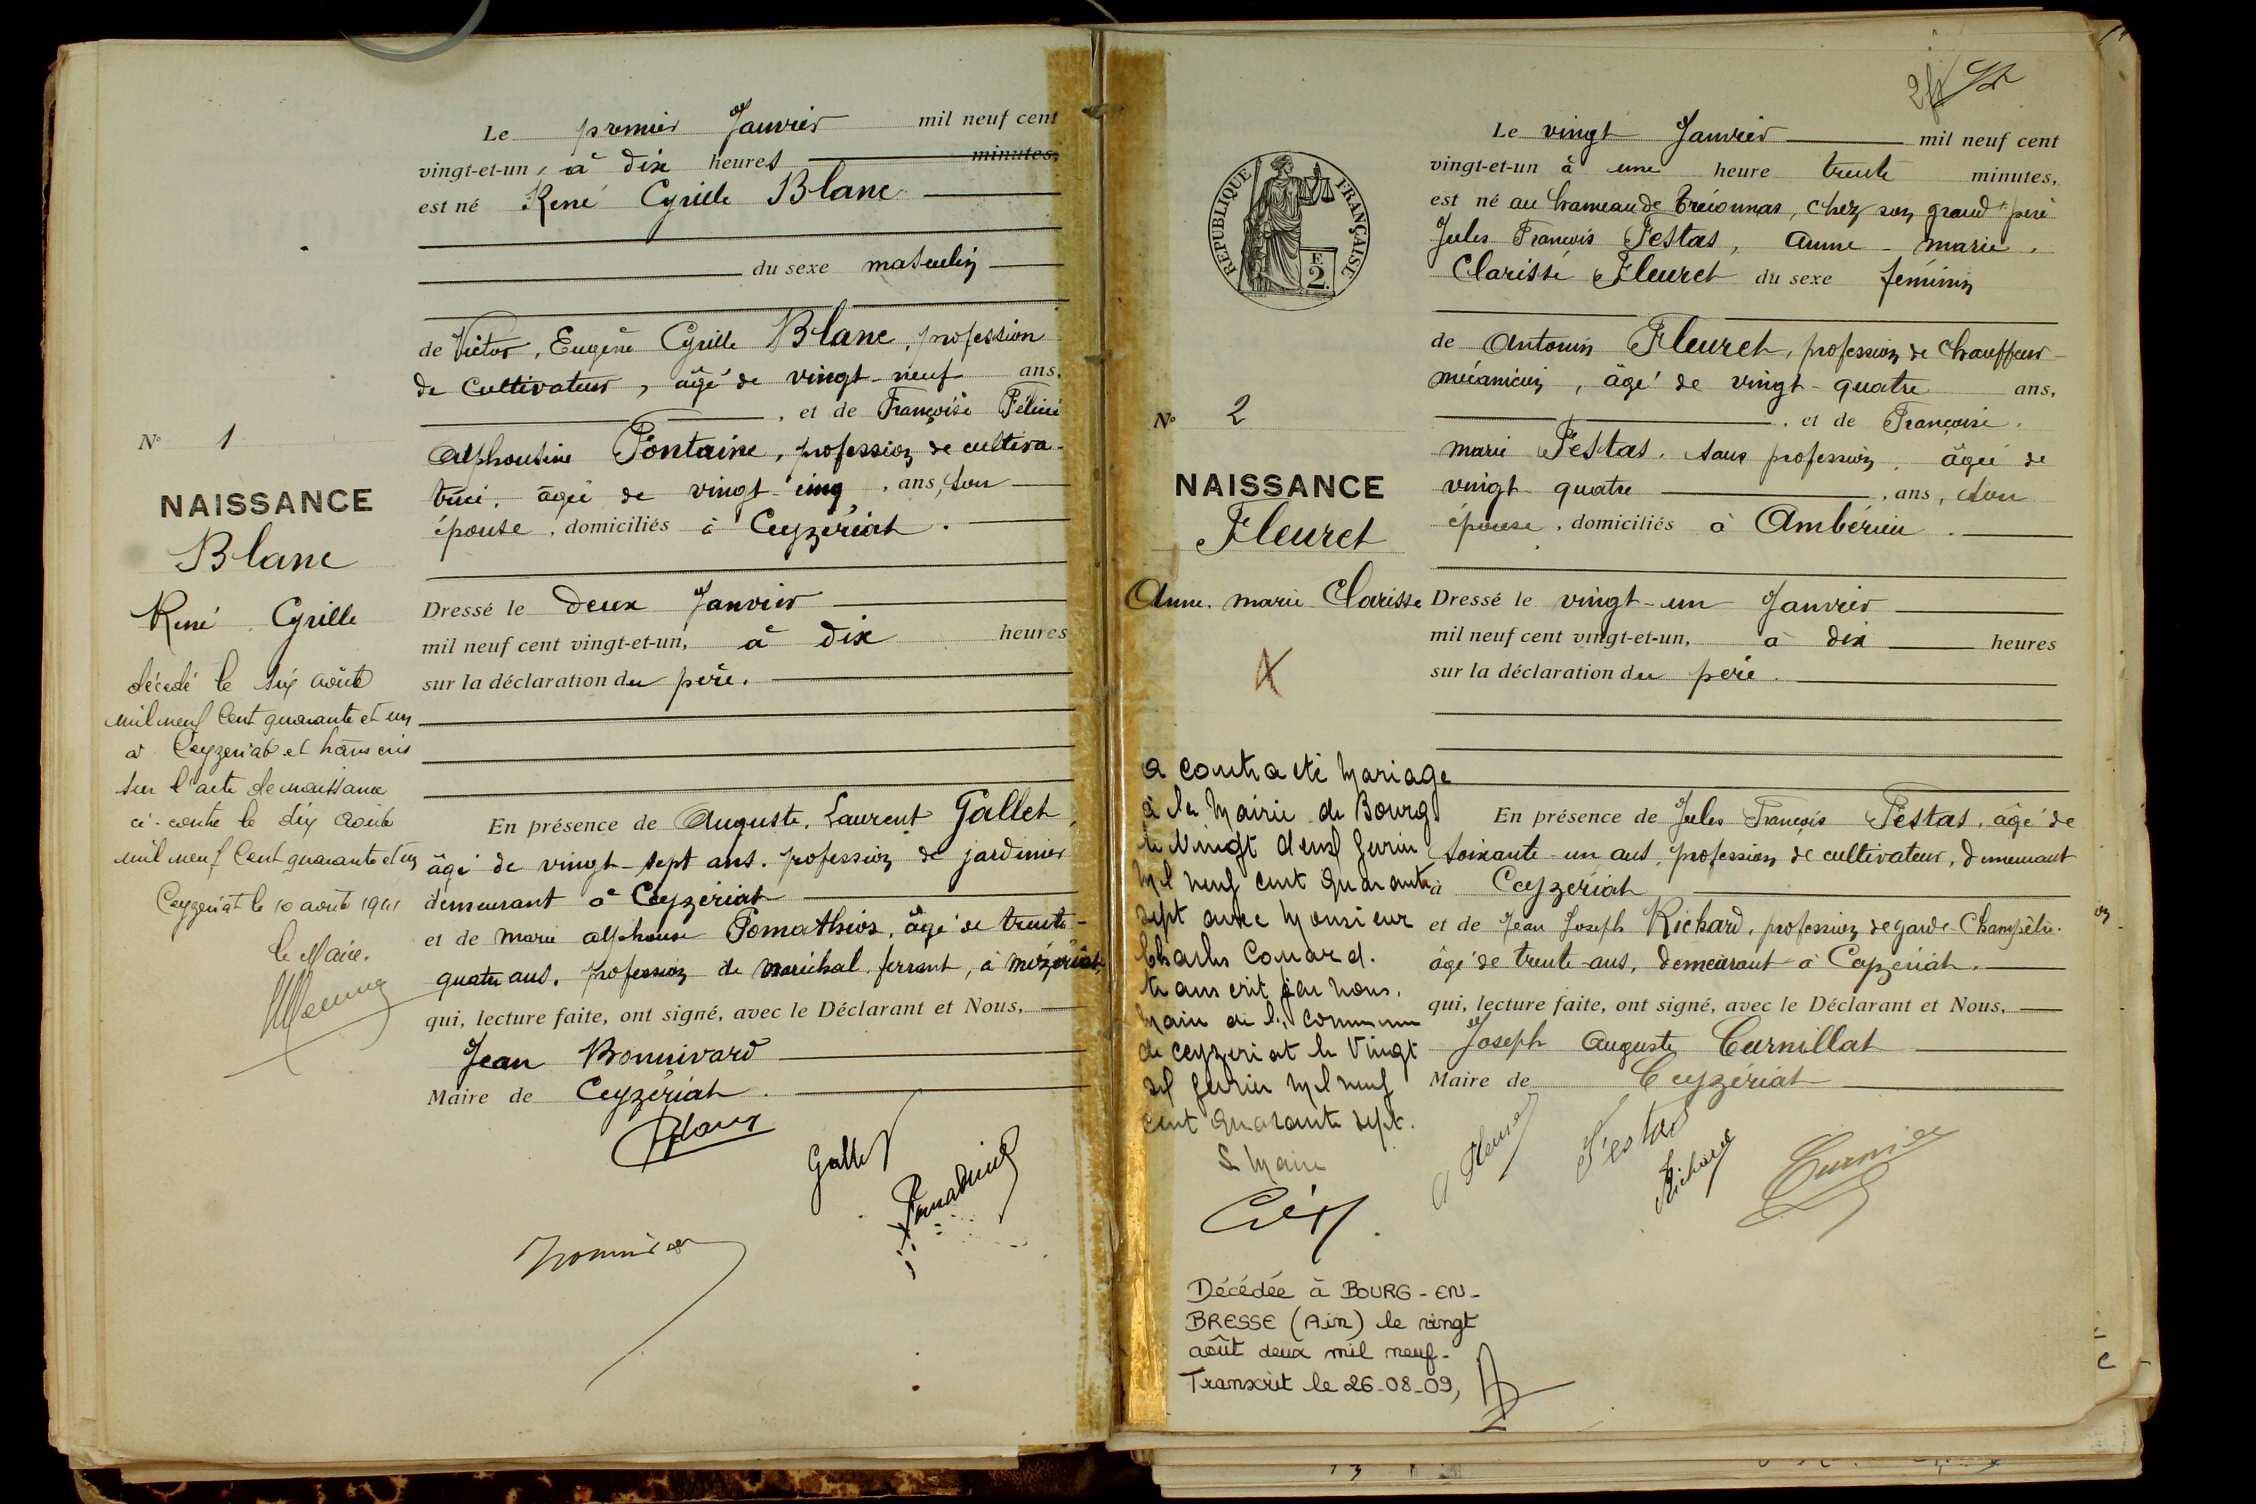 Le premier Janvier mil neuf cent
vingt-et-un, à dix heures minutes,
est né René Cyrille Blanc
du sexe masculin
de Victor, Eugène Cyrille Blanc, profession
de cultivateur, âgé de vingt-neuf ans,
, et de Françoise Féline
Alphonsine Fontaine, profession de cultiva-
trice, âgée de vingt-cinq, ans, son
épouse, domiciliés à Ceyzériat.
N° 1
NAISSANCE
Blanc
René Cyrille
décédé le six août
mil neuf cent quarante et un
à Ceyzeriat et transcris
sur l'acte de naissance
ci-contre le dix août
mil neuf cent quarante et un
Ceyzeriat le 10 août 1941
le Maire.
Dressé le deux Janvier
mil neuf cent vingt-et-un, à dix heures
sur la déclaration du père.
En présence de Auguste, Laurent Gallet,
âgé de vingt-sept ans, profession de jardinier
demeurant à Ceyzériat
et de Marie Alphonse Pomathios, âgé de trente-
quatre ans, profession de Maréchal ferrant, à Mézériat,
qui, lecture faite, ont signé, avec le Déclarant et Nous,
Jean Bonnivard
Maire de Ceyzériat.
Blanc
Gallet
2 f
RÉPUBLIQUE FRANÇAISE
F.
2.
Le vingt Janvier mil neuf cent
vingt-et-un à une heure trente minutes,
est né au hameau de Tréconnas, chez son grand-père
Jules François Pestas, Anne-Marie,
Clarisse Fleuret du sexe féminin
de Antonin Fleuret, profession de chauffeur-
mécanicien, âgé de vingt-quatre ans,
, et de Françoise,
Marie Pestas, sans profession, âgée de
vingt quatre, ans, son
épouse, domiciliés à Ambérieu.
N° 2
NAISSANCE
Fleuret
Anne. Marie Clarisse
Dressé le vingt-un Janvier
mil neuf cent vingt-et-un, à dix heures
sur la déclaration du père.
En présence de Jules François Pestas, âgé de
soixante-un ans, profession de cultivateur, demeurant
à Ceyzériat
et de Jean Joseph Richard, profession de garde-champêtre.
âgé de trente ans, demeurant à Ceyzériat.
qui, lecture faite, ont signé, avec le Déclarant et Nous,
Joseph Auguste Curnillat
Maire de Ceyzériat
a contracté mariage
à la Mairie de Bourg
le vingt deux février
mil neuf cent quarante
sept avec Monsieur
Charles Comard.
transcrit par nous,
Maire de la commune
de Ceyzeriat le vingt
six février mil neuf
cent quarante sept.
Le Maire
A Fleuret
Pestas
Richard
Décédée à BOURG-EN-
BRESSE (Ain) le vingt
août deux mil neuf-
Transcrit le 26-08-09,